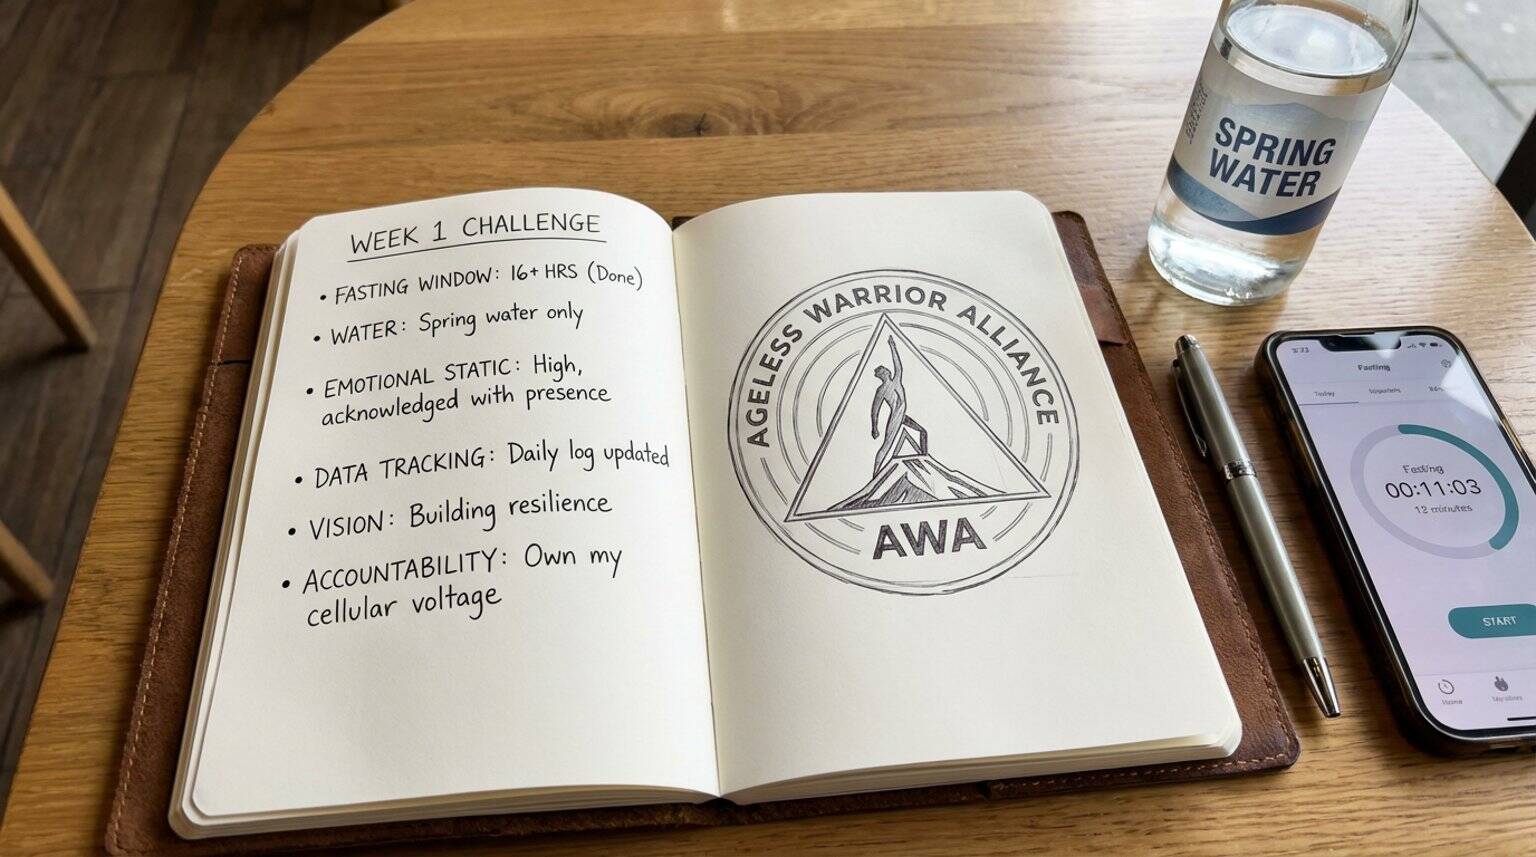 WEEK 1 CHALLENGE
• FASTING WINDOW: 16+ HRS (Done)
• WATER: Spring water only
• EMOTIONAL STATIC: High,
acknowledged with presence
• DATA TRACKING: Daily log updated
• VISION: Building resilience
• ACCOUNTABILITY: Own my
cellular voltage
AGELESS WARRIOR ALLIANCE
AWA
SPRING
WATER
Fasting
Today
00:11:03
12 minutes
START